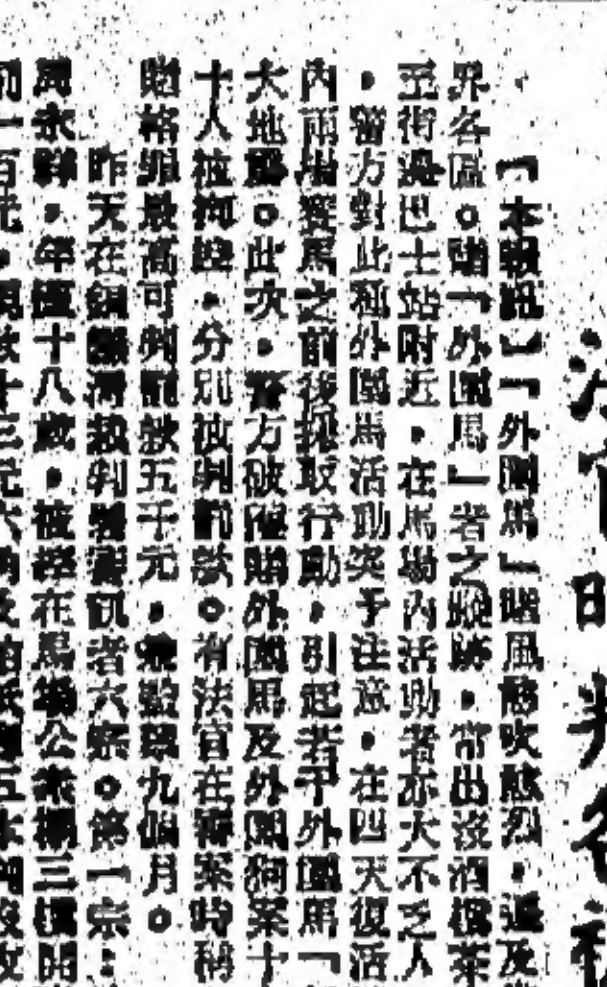 【本報訊】「外圍馬」賭風愈吹愈烈，遍及
界各區。賭「外圍馬」者之蹤跡，常出沒酒樓茶
至街邊巴士站附近，在馬場內活動者亦大不乏人
，警方對此種外圍馬活動突予注意，在四天復活
內兩場賽馬之前後採取行動，引起若干外圍馬「
大地震。此次，警方破獲賭外圍馬及外圍狗案十
十人被拘控，分別被判罰款。有法官在審案時稱
賭格組最高可判罰款五千元，兼監禁九個月。
昨天在銅鑼灣裁判署審訊者六宗。第一宗：
周永群，年僅十八歲，被控在馬場公眾棚三樓開
一百元，